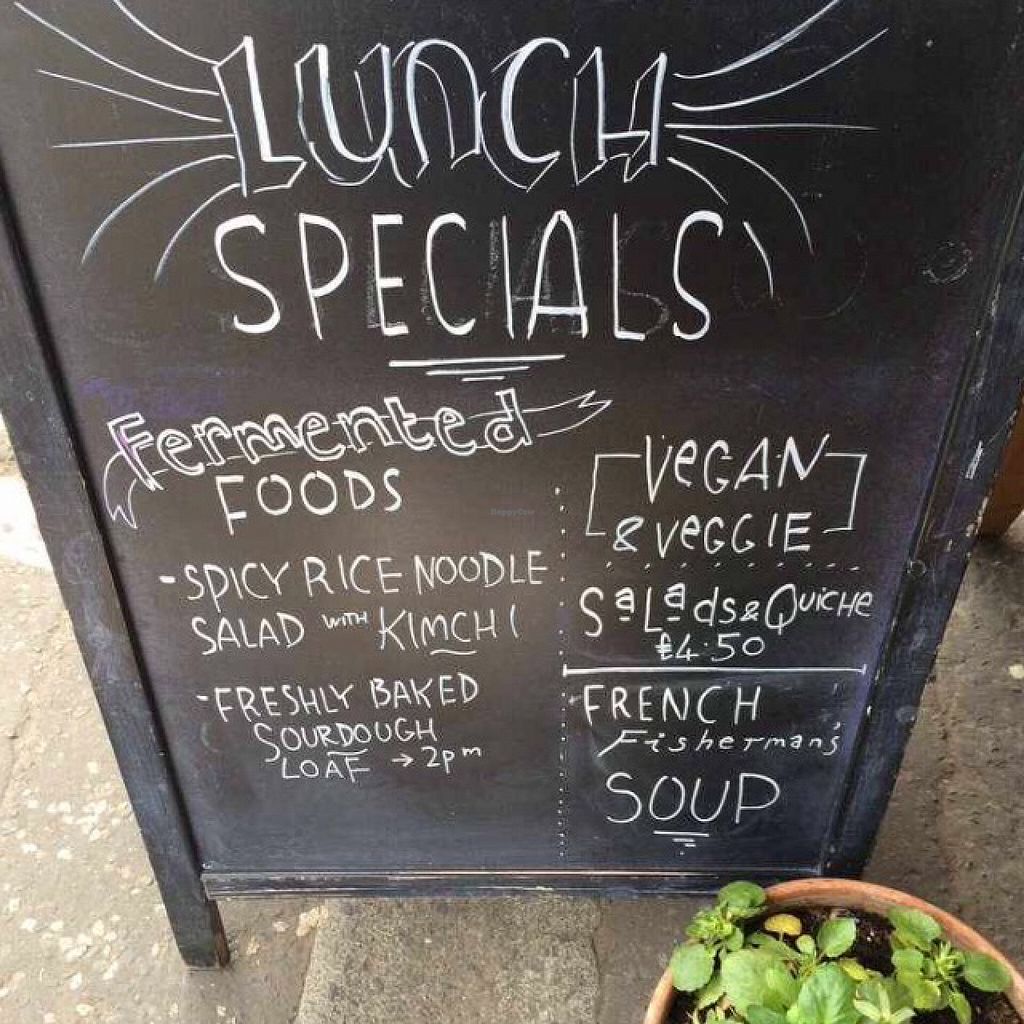 LUNCH
SPECIALS
Fermented
FOODS
- SPICY RICE NOODLE
SALAD WITH KIMCHI
- FRESHLY BAKED
SOURDOUGH
LOAF → 2pm
VEGAN
& VEGGIE
SALADS & QUICHE
£4.50
FRENCH
Fisherman's
SOUP